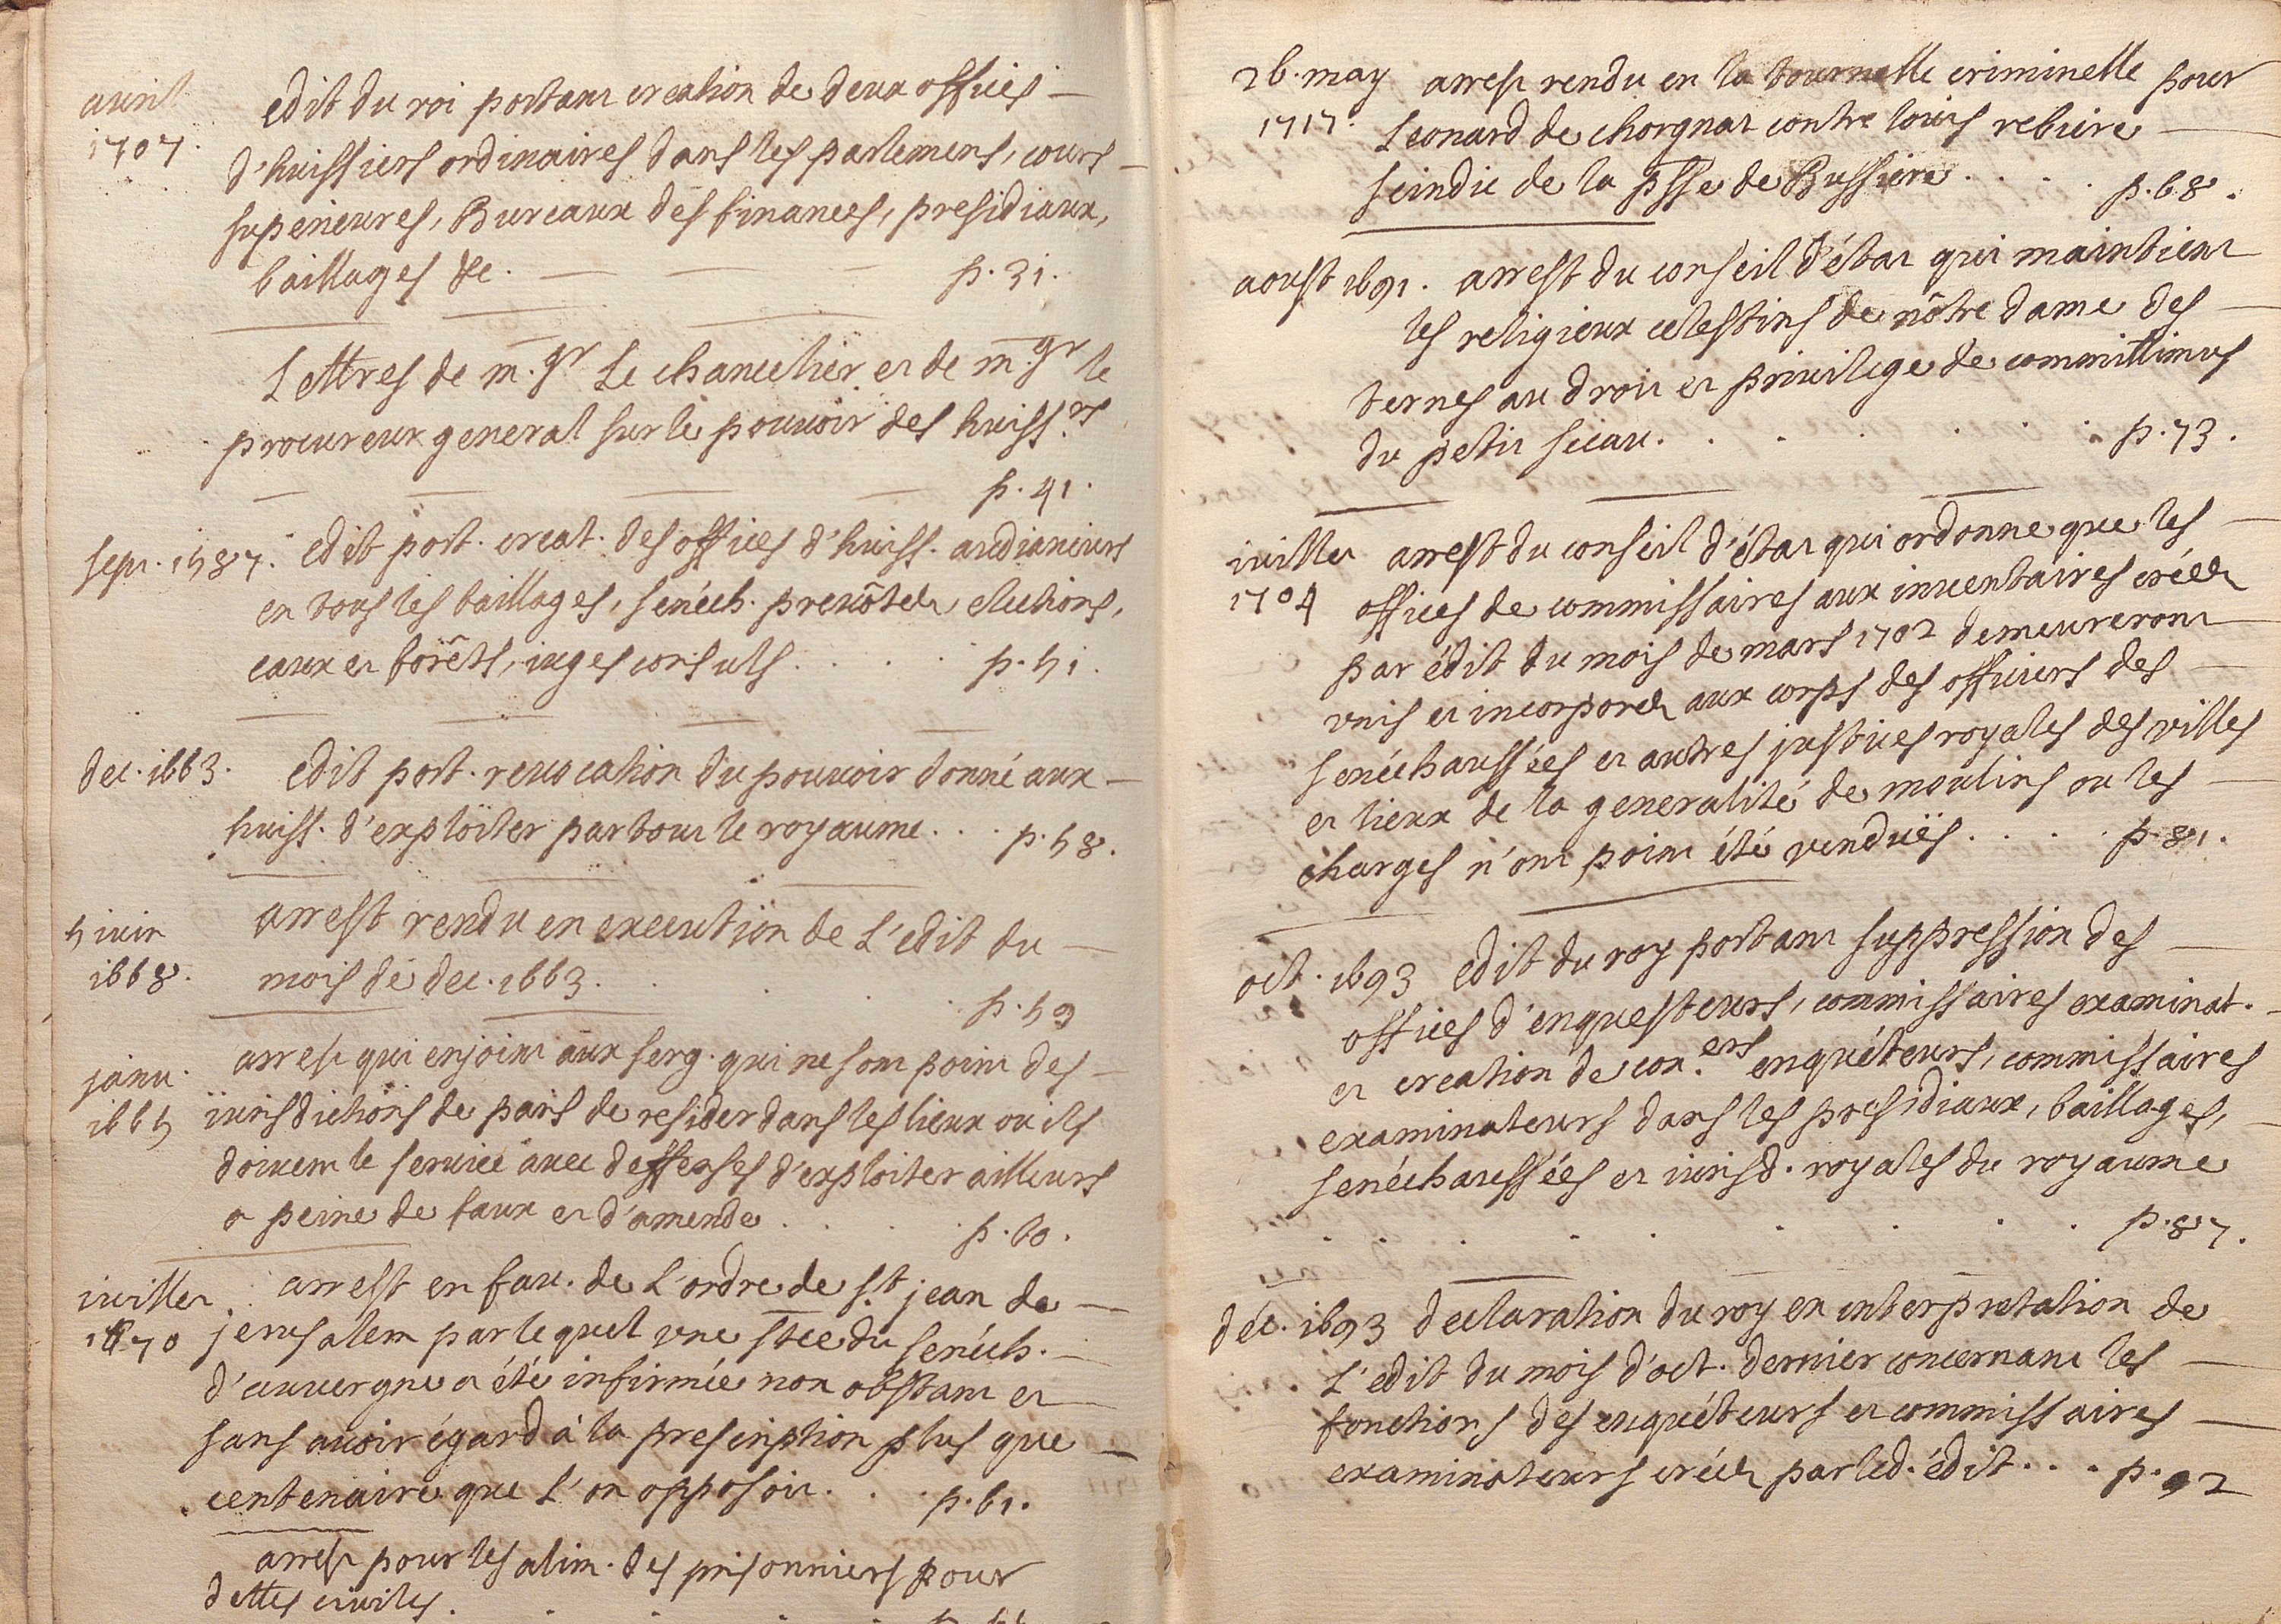 avril edit du roi portant creation de deux offices
1707. d'huissiers ordinaires dans les parlemens, cours
superieures, Bureaux des finances, presidiaux,
baillages &c. p. 31.
Lettres de m.gr Le chancelier et de m.gr le
procureur general sur le pouvoir des huiss.rs
p. 41.
sept. 1587. edit port. creat. des offices d'huiss. audianciers
en tous les baillages, sénéch. prevôtez elections,
eaux et forêts, iuges consuls . . . . p. 51.
dec. 1663. edit port. revocation du pouvoir donné aux
huiss. d'exploiter par tout le royaume . . . p. 58.
5 iuin arrest rendu en execution de L'edit du
1668. mois de dec. 1663. . . . . p. 59
janv. arrest qui enjoint aux serg. qui ne sont point des
1665 iurisdictions de paris de resider dans les lieux ou ils
doivent le service avec deffenses d'exploiter ailleurs
a peine de faux et d'amende . . . . p. 60.
iuillet arrest en fav. de L'ordre de s.t jean de
1670 jerusalem par lequel une stce du sénéch.
d'auvergne a été infirmée non obstant et
sans avoir égard à la prescription plus que
centenaire que L'on opposoit . . . p. 61.
arrest pour les alim. des prisonniers pour
dettes civiles . . . .
26. may arrest rendu en la tournelle criminelle pour
1717. Leonard de chorgnat contre louis rebiere
scindic de la psse de Bussiere . . . . p. 68.
aoust 1691. arrest du conseil d'état qui maintient
les religieux celestins de nôtre dame des
ternes au droit et privilege de committimus
du petit sceau. . . . . . p. 73.
iuillet arrest du conseil d'état qui ordonne que les
1704 offices de commissaires aux inventaires créez
par édit du mois de mars 1702 demeureront
unis et incorporez aux corps des officiers des
sénéchaussées et autres justices royales des villes
et lieux de la generalité de moulins ou les
charges n'ont point été venduës . . . . p. 81.
oct. 1693 edit du roy portant suppression des
offices d'enquesteurs, commissaires examinat.
et creation de con.ers enquêteurs, commissaires
examinateurs dans les presidiaux, baillages,
sénéchaussées et iurisd. royales du royaume
. . . . . . . . p. 87.
déc. 1693 declaration du roy en interpretation de
L'edit du mois d'oct. dernier concernant les
fonctions des enquêteurs et commissaires
examinateurs créez par led. édit . . . p. 92